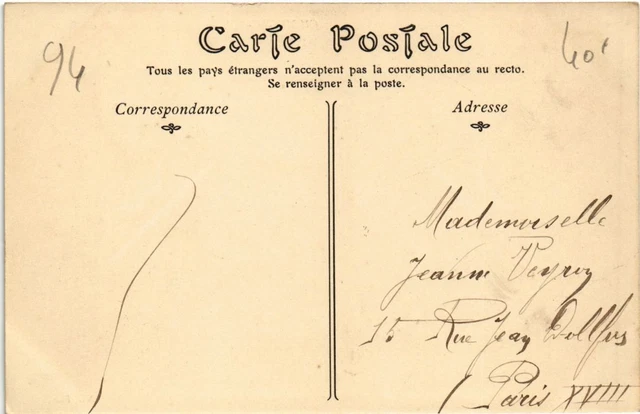 94
Carte Postale
40f
Tous les pays étrangers n'acceptent pas la correspondance au recto.
Se renseigner à la poste.
Correspondance
Adresse
Mademoiselle
Jeanne
15 Rue Jean Dollfus
Paris XVIII